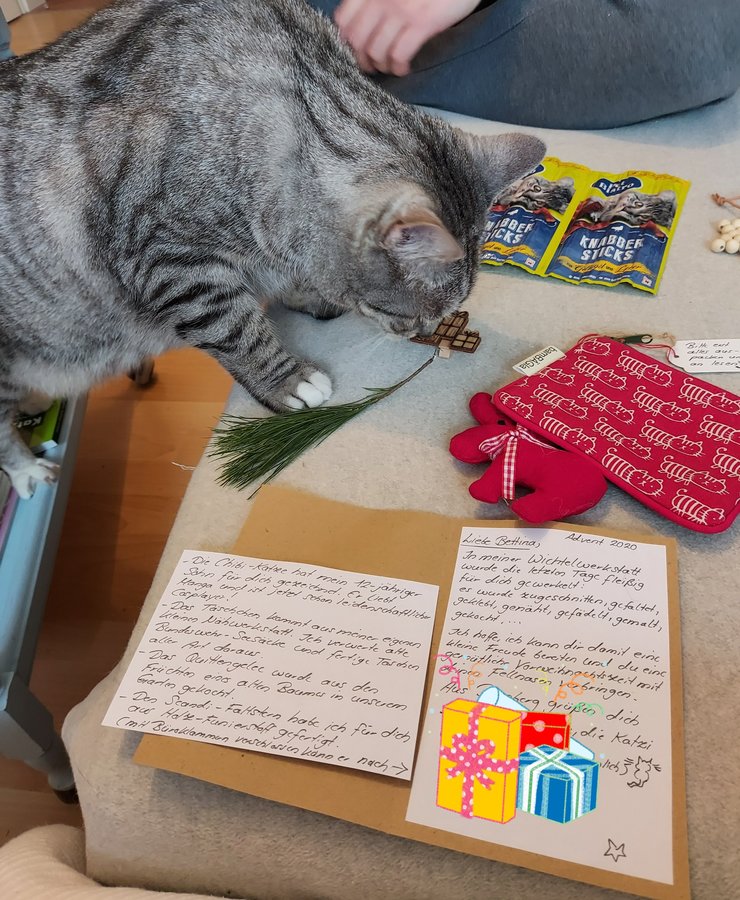 KNABBER
STICKS
KNABBER
STICKS
mit Geflügel und Leber
bambAGIa
Bitte erst
alles aus-
packen und
an lesen
- Die Chibi-Katze hat mein 12-jähriger
Sohn für dich gezeichnet. Er liebt
Manga und ist jetzt schon leidenschaftlicher
Cosplayer!
- Das Täschchen, kommt aus meiner eigenen
kleinen Nähwerkstatt. Ich verwerte alte
Bundeswehr-Seesäcke und fertige Taschen
aller Art daraus.
- Das Quittengelee wurde aus den
Früchten eines alten Baums in unserem
Garten gekocht.
- Den Scandi-Faltstern habe ich für dich
aus Holz-Furnierstoff gefertigt.
(mit Büroklammern verschlossen kann er nach →
Liebe Bettina,
Advent 2020
In meiner Wichtelwerkstatt
wurde die letzten Tage fleißig
für dich gewerkelt.
es wurde zugeschnitten, gefaltet,
geklebt, genäht, gefädelt, gemalt,
gekocht, ...
Ich hoffe, ich kann dir damit eine
kleine Freude bereiten und du eine
gemütliche Vorweihnachtszeit mit
deiner Fellnase verbringen.
Aus grüßen dich
die Katzi
lich}